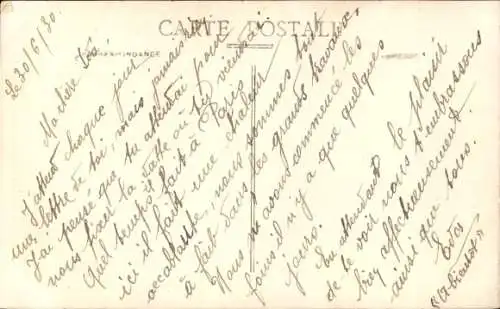 CARTE POSTALE
CORRESPONDANCE
Le 30/6/30.
Ma chère
J'attend chaque jour
une lettre de toi, mais jamais rien
J'ai pensé que tu attendai pour
nous fixer la date où tu viendrai
Quel temps fait à Paris
ici il fait une chaleur
accablante, nous sommes tout
à fait dans les grands travaux,
Nous avons commencé les
foins il n'y a que quelques
jours.
En attendant le plaisir
de te voir nous t'embrassons
bien affectueusement
ainsi que tous.
Eva
"à bientôt"